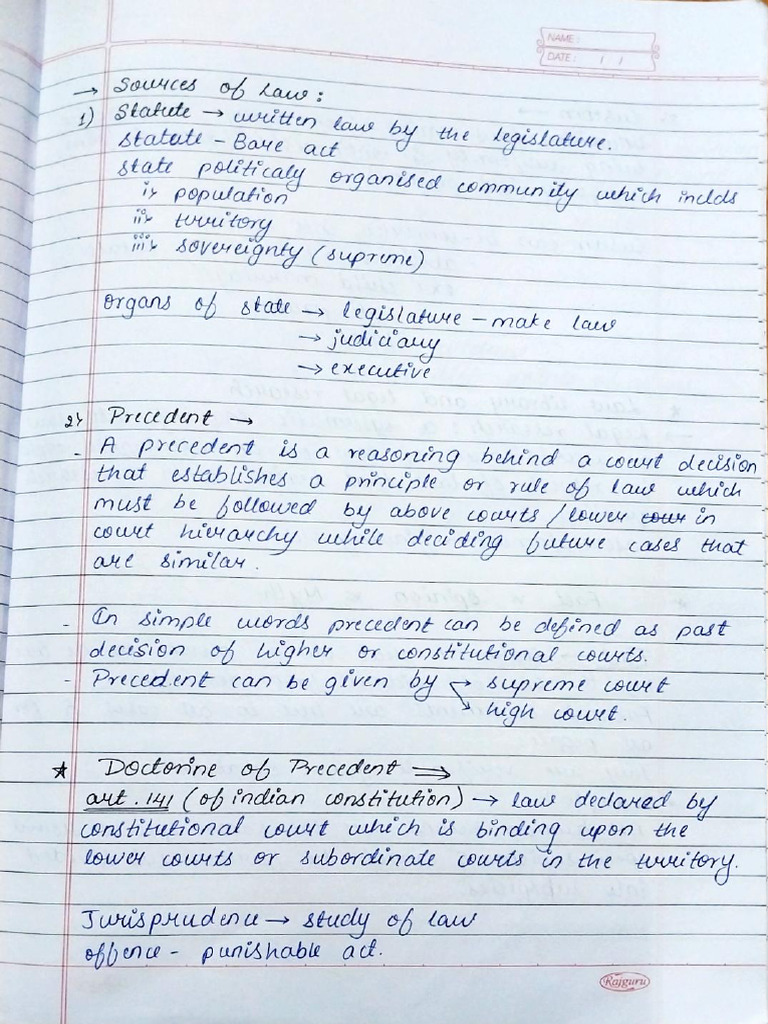 NAME:
DATE: / /
→ Sources of Law :
1) Statute → written law by the legislature.
statute - Bare act
state politicaly organised community which inclds
i) population
ii) territory
iii) sovereignty (supreme)
Organs of state → legislature - make law
→ judiciary
→ executive
2) Precedent →
- A precedent is a reasoning behind a court decision
that establishes a principle or rule of law which
must be followed by above courts / lower cour in
court hierarchy while deciding future cases that
are similar.
- In simple words precedent can be defined as past
decision of higher or constitutional courts.
- Precedent can be given by → supreme court
→ high court.
* Doctorine of Precedent ⇒
art. 141 (of indian constitution) → law declared by
constitutional court which is binding upon the
lower courts or subordinate courts in the territory.
Jurisprudence → study of law
offence - punishable act.
Rajguru